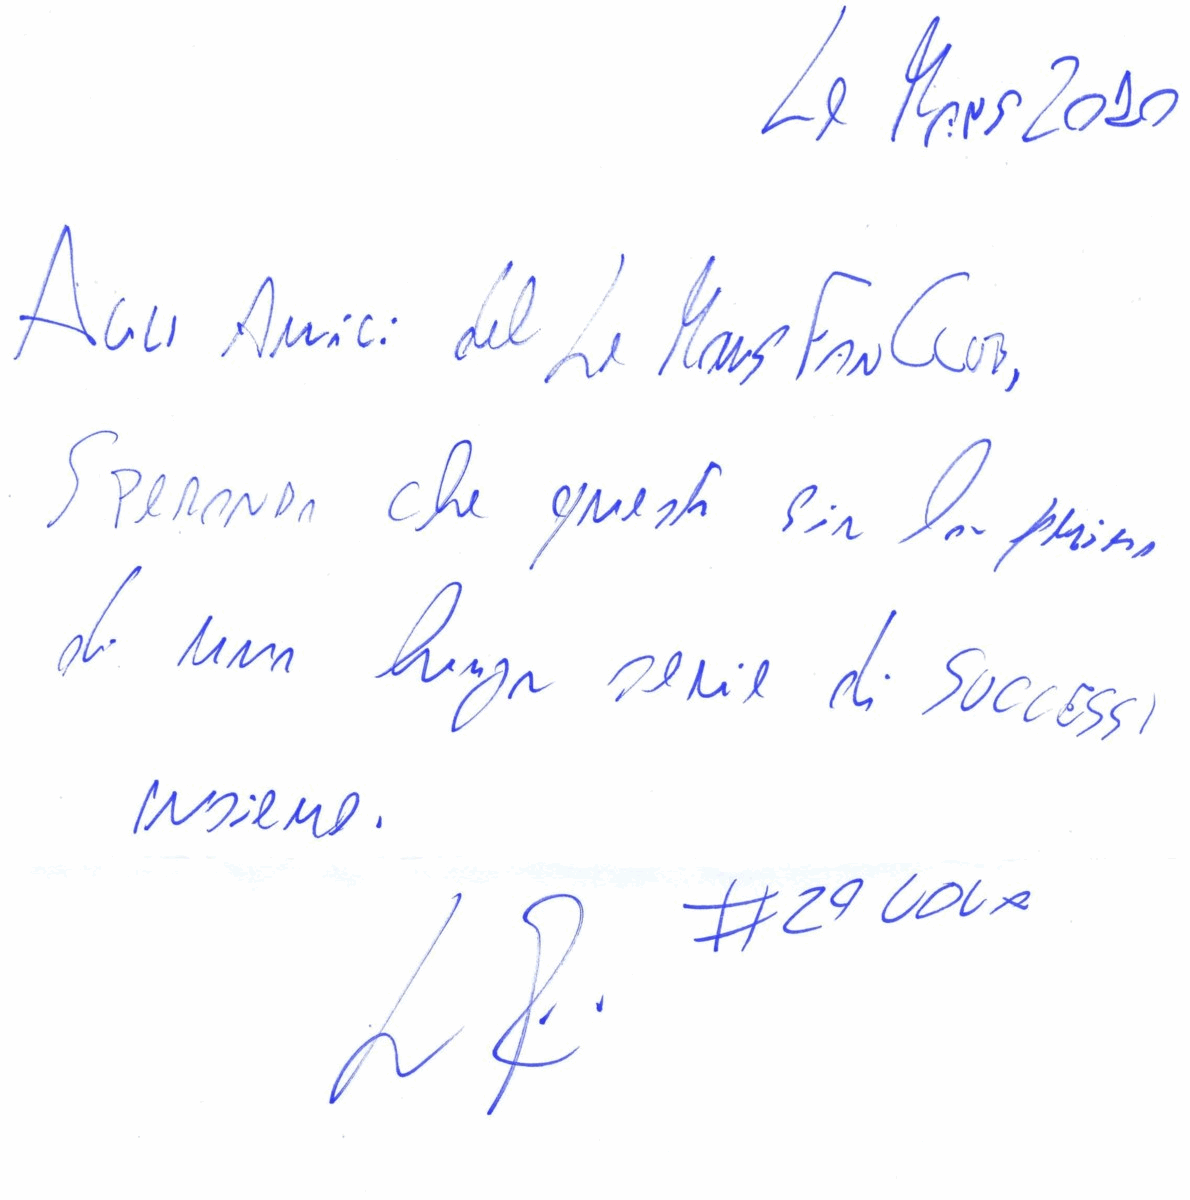 Le Mans 2010
Agli Amici del Le Mans Fan Club,
Sperando che questa sia la prima
di una lunga serie di SUCCESSI
insieme.
#29 LOLA